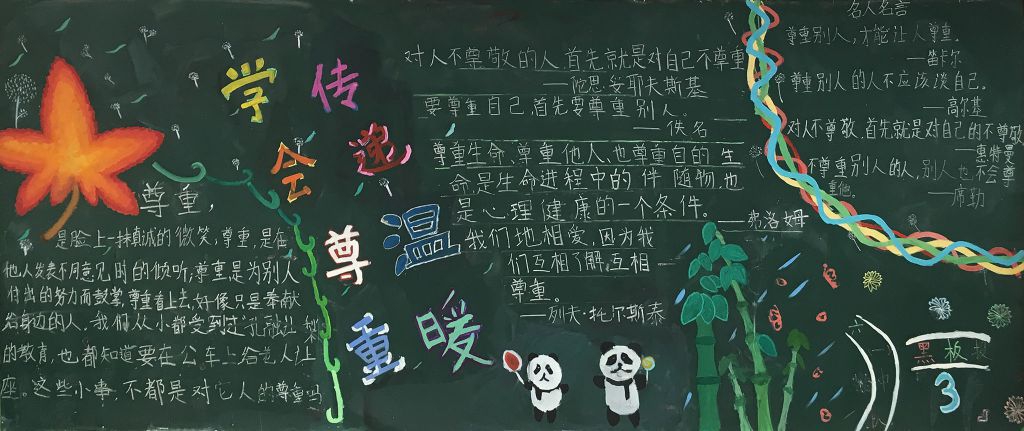 学会尊重
传递温暖
尊重，
是脸上一抹真诚的微笑，尊重，是在
他人发表不同意见时的倾听，尊重是为别人
付出的努力而鼓掌，尊重看上去，好像只是奉献
给身边的人。我们从小都受到过
的教育，也都知道要在公车上给老人让
座。这些小事，不都是对它人的尊重吗
对人不尊敬的人首先就是对自己不尊重
——陀思妥耶夫斯基
要尊重自己，首先要尊重别人。
——佚名
尊重生命、尊重他人、也尊重自的生
命，是生命进程中的伴随物，也
是心理健康的一个条件。
——弗洛姆
我们地相爱，因为我
们互相了解，互相
尊重。
——列夫·托尔斯泰
名人名言
尊重别人，才能让人尊重。
——笛卡尔
尊重别人的人不应该谈自己。
——高尔基
对人不尊敬，首先就是对自己的不尊敬
——惠特曼
不尊重别人的人，别人也不会尊
重他。
——席勒
六
黑板报
3